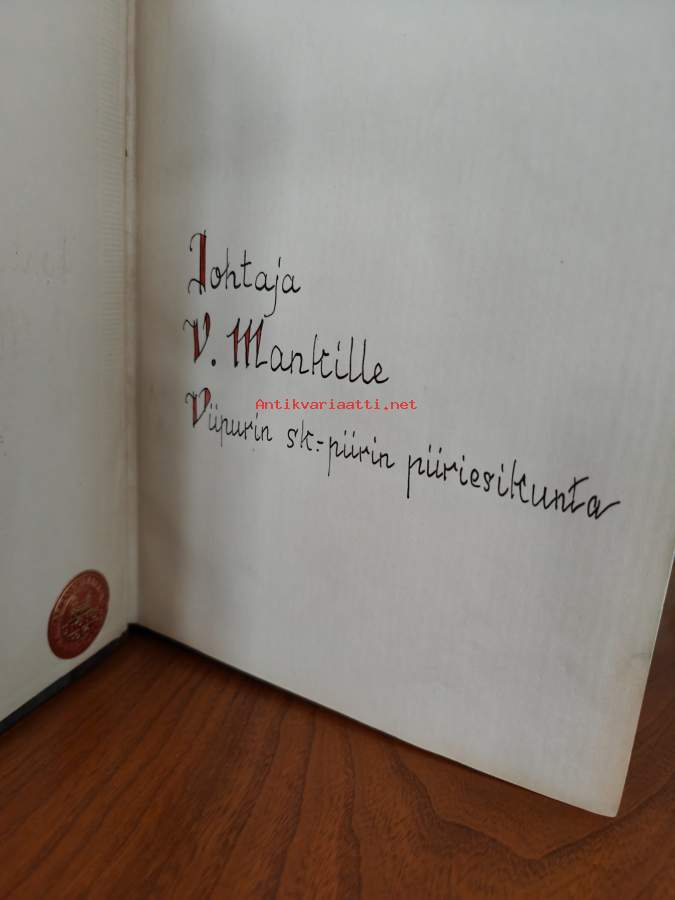 Johtaja
V. Mankille
Antikvariaatti.net
Viipurin sk.-piirin piiriesikunta